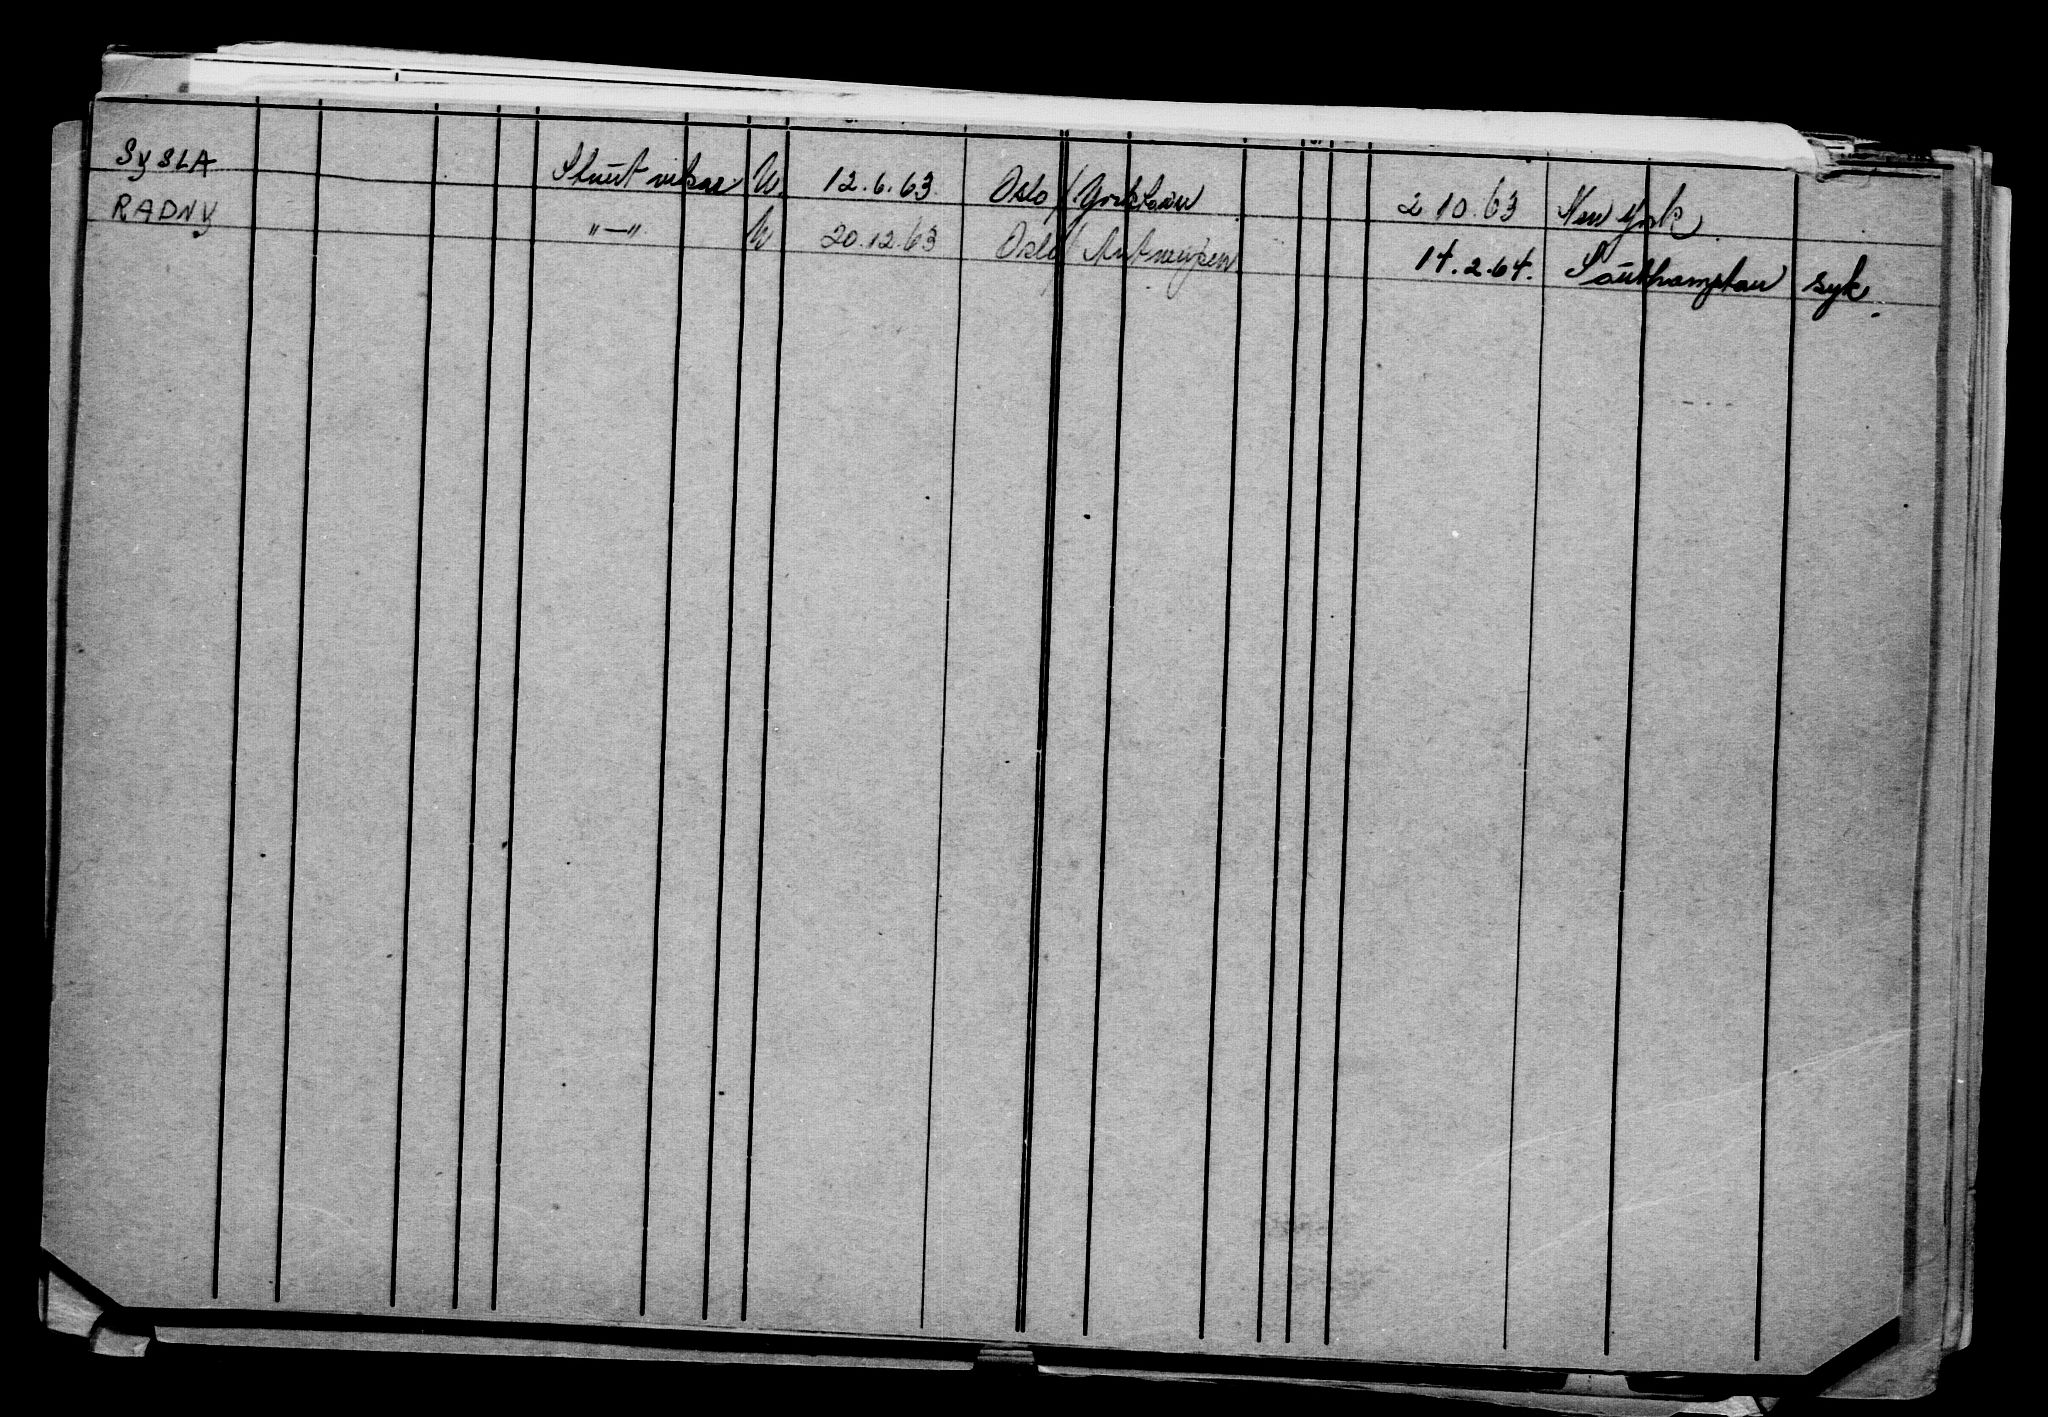 SYSLA Stuert vikar U 12.6.63 Oslo / Yorktown 2 10.63 New York
RADNY " — " U 20.12.63 Oslo / Antwerpen 14.2.64. Southampton syk.